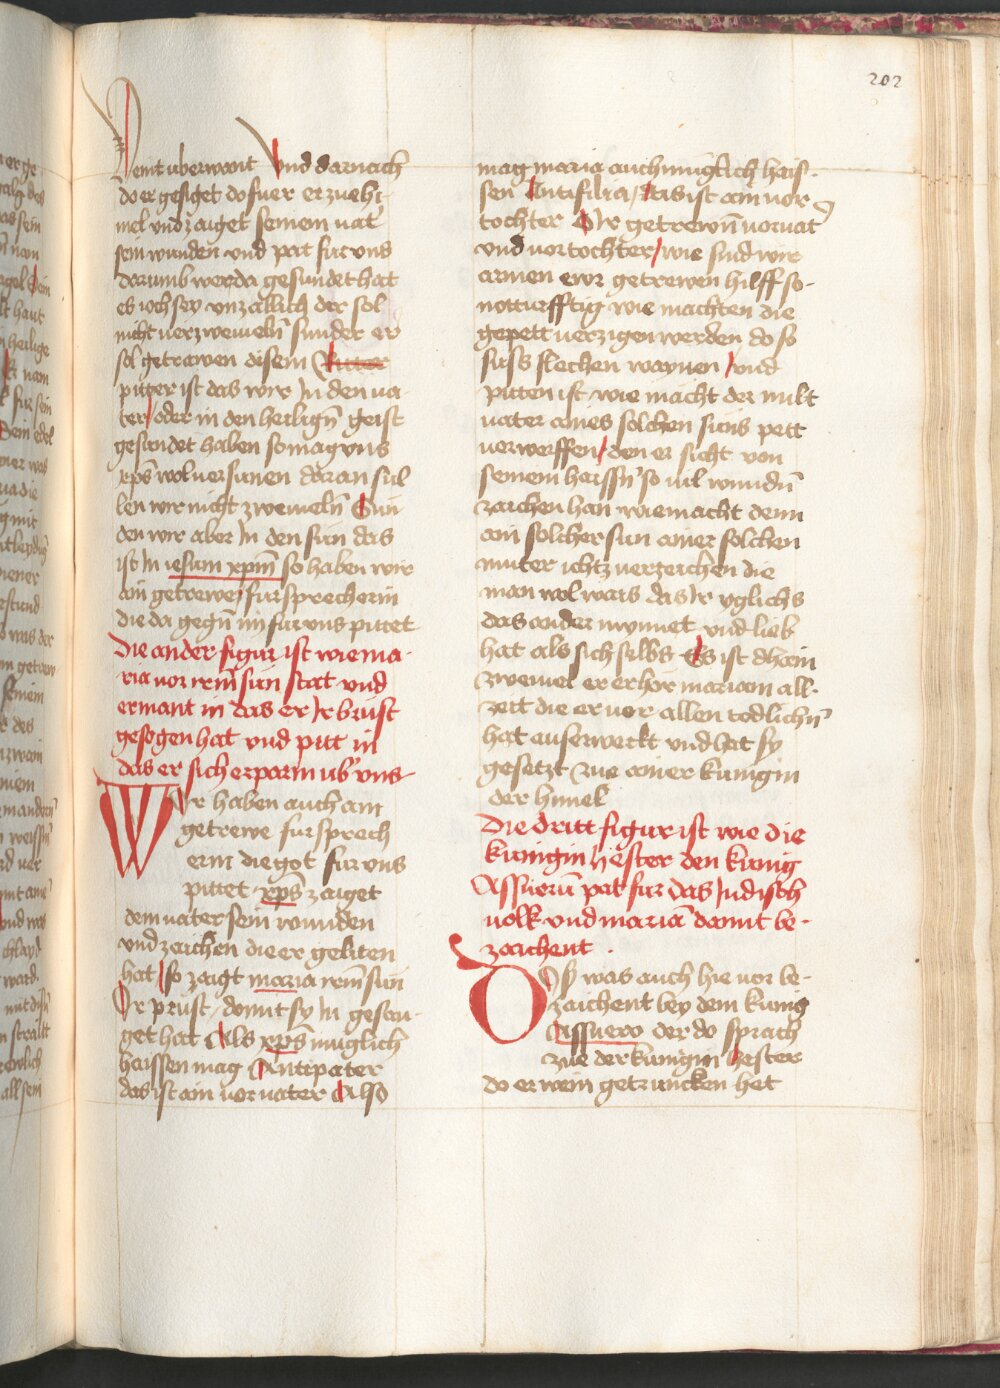 202
Demit uberwant Vnd darnach
do er gesiget do fuer er zue hi-
mel vnd zaiget seinem vat̾
sein wunden vnd pat fur vns
darumb wer da gesundet hat
es ioch sey vnzallich der sol
nicht verzweiueln̄ sunder er
sol getrawen disem
pitter ist das wir Jn den va-
ter oder in den heilign̄ geist
gesundet haben so mag vns
xp̄s wol versunen daran sul
len wir nicht zweiueln̄ Sun
den wir aber Jn den sun das
ist Jn iesum xp̄m so haben wir
ain getrewe fursprecherin
die da gegn̄ im fur vns pittet
Die ander figur ist wie ma-
ria vor irem̄ sun stat vnd
ermant in das er Jr brust
gesogen hat vnd pitt in
das er sich erparm vb̾ vns
Wir haben auch ain
getrewe fursprech
erin die got fur vns
pittet xp̄s zaiget
dem vater sein wunden
vnd zaichen die er geliten
hat so zaigt maria irem̄ sun
Jr prust / domit sy Jn gesau-
get hat Als xp̄s muglich
haissen mag Antipater
das ist ain vor vater Also
mag maria auch muglich hais-
sen Antifilia / das ist ain vor
tochter O Jr getrewn̄ vorvat̾
vnd vortochter / wie sind wir
armen ewr getrewen hilff so-
notturfftig wie machten die
gepett verzigen werden do so
suss flechen waynen / vnd
pitten ist wie macht der milt
vater aines solchen suns pett
verwerffen / den er sicht von
seinem haissn̄ so vil wundn̄
zaichen han wie macht denn
ain solcher sun ainer solchen
muter ichtz verzeichen die
man wol wais das Jr yglichs
das ander mynnet vnd lieb
hat als sich selbs Es ist dhain
zweiuel er erhor mariam all-
zeit die er vor allen todlichn̄
hat ausserwelt vnd hat sy
gesetzt zue ainer kunigin
der himel
Die dritt figur ist wie die
kunigin hester den kunig
Assuerū pat fur das Judisch
volk vnd maria damit be-
zaichent .
Dsy was auch hie vor be-
zaichent bey dem kunig
Assuero der do sprach
zue der kunigin hester
do er wein getruncken het